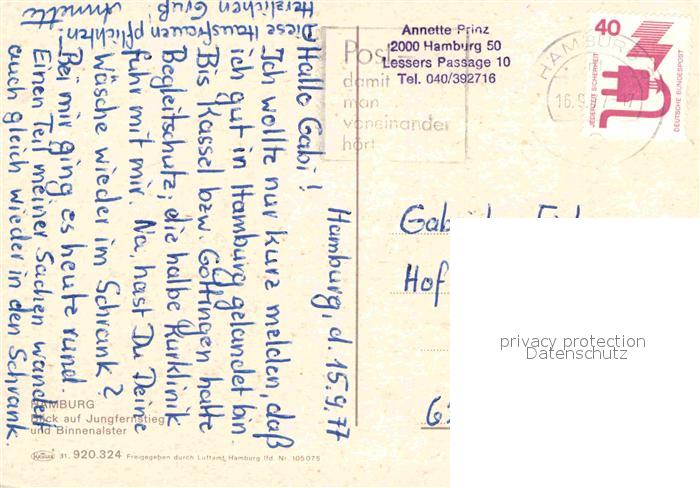 Hamburg, d. 15.9.77
Hallo Gabi!
Ich wollte nur kurz melden, daß
ich gut in Hamburg gelandet bin.
Bis Kassel bzw. Göttingen hatte
Begleitschutz; die halbe Kurklinik
fuhr mit mir. Na, hast Du Deine
Wäsche wieder im Schrank?
Bei mir ging es heute rund.
Einen Teil meiner Sachen wandert
auch gleich wieder in den Schrank.
Diese Hausfrauenpflichten!
Herzlichen Gruß
Annette
Annette Prinz
2000 Hamburg 50
Lessers Passage 10
Tel. 040/392716
Post
damit
man
voneinander
hört
HAMBURG
16.9.
40
JEDERZEIT SICHERHEIT
DEUTSCHE BUNDESPOST
Hof
privacy protection
Datenschutz
HAMBURG
Blick auf Jungfernstieg
und Binnenalster
31. 920.324 Freigegeben durch Luftamt Hamburg lfd. Nr. 105075